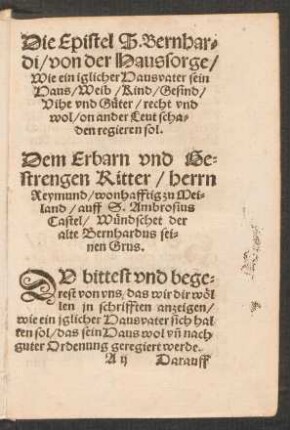 Die Epistel S. Bernhar-
di/von der Haussorge/
Wie ein iglicher Hausvater sein
Haus/Weib/Kind/Gesind/
Vihe vnd Güter/recht vnd
wol/on ander Leut scha-
den regieren sol.
Dem Erbarn vnd Ge-
strengen Ritter/herrn
Reymund/wonhafftig zu Mei-
land/auff S. Ambrosius
Castel/Wündschet der
alte Bernhardus sei-
nen Grus.
DV bittest vnd bege-
rest von vns, das wir dir wöl
len jn schrifften anzeigen/
wie ein jglicher Hausvater sich hal
ten sol/das sein Haus wol vn̄ nach
guter Ordenung geregiert werde.
A ij Darauff